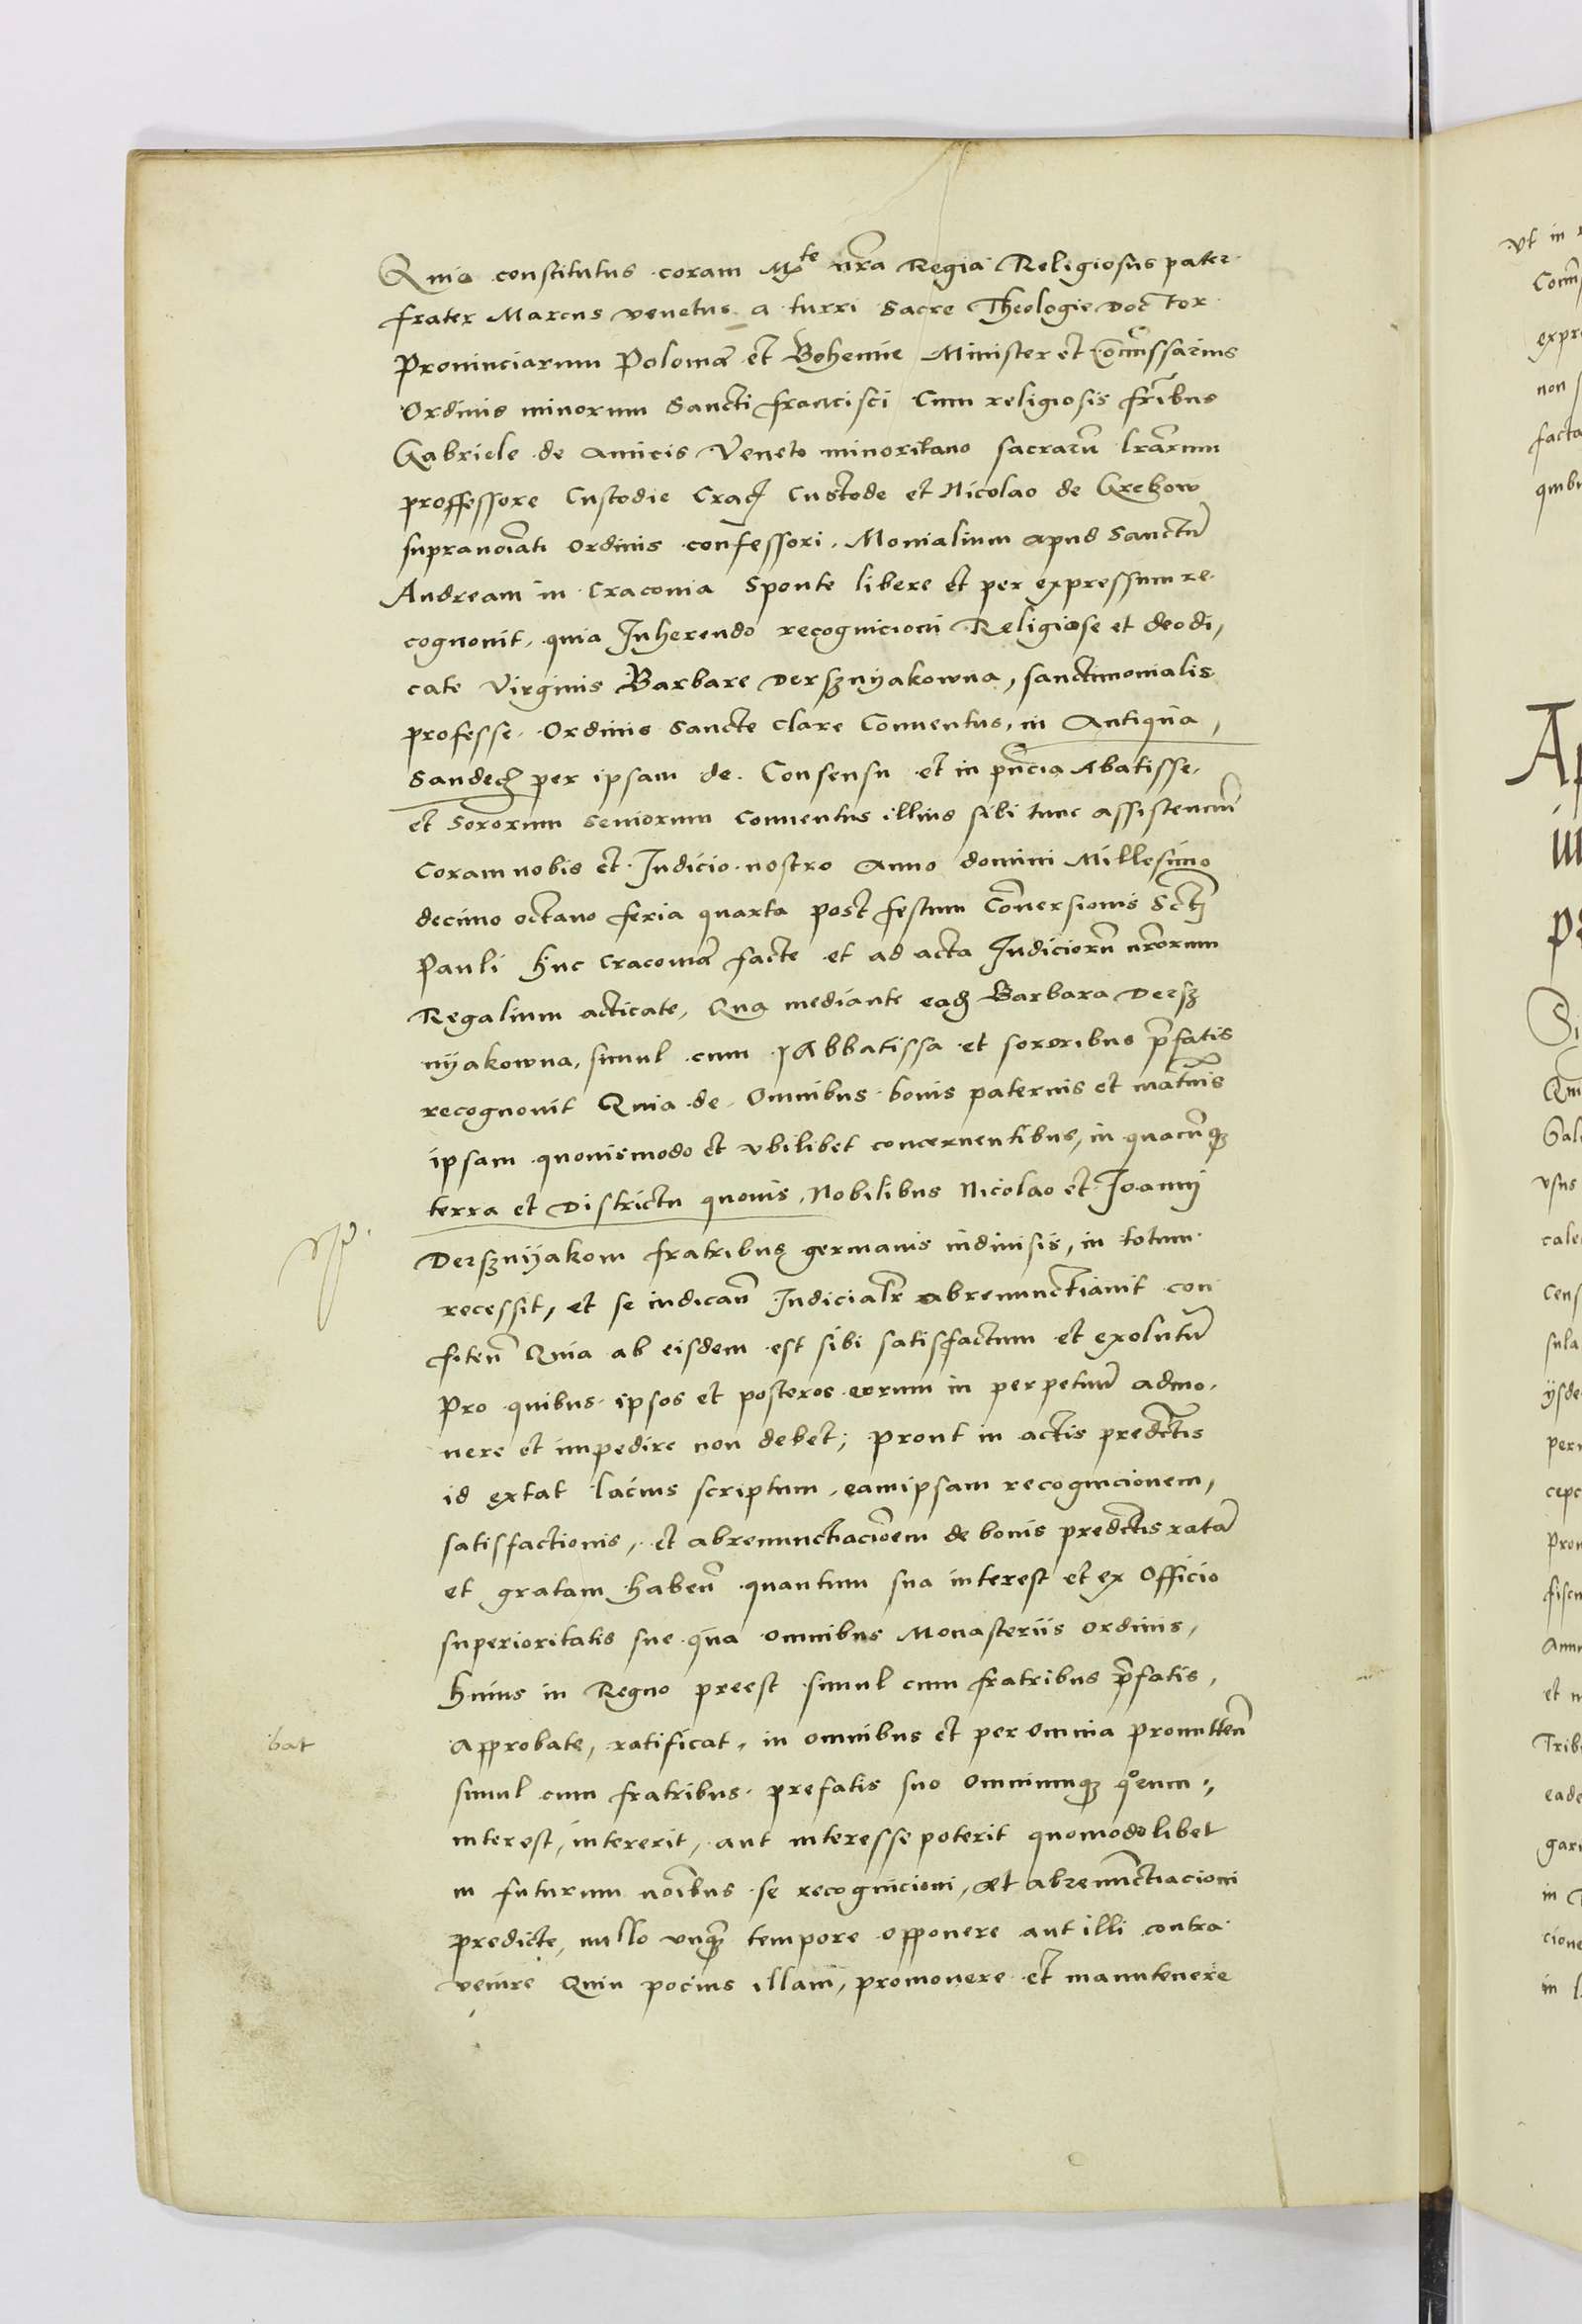 Quia constitutus coram Mte nra Regia Religiosus pater
frater Marcus venetus a turri Sacre Theologie Doctor
Prouinciarum Polonie et Bohemie Minister et Comissarius
Ordinis minorum Sancti francisci Cum religiosis fribus
Gabriele de Amicis Veneto minoritano sacrarum lrarum
proffessore Custodie Crac Custode et Nicolao de Grekow
supranoiati Ordinis confessori Monialium apud Sanctu
Andream in Cracouia Sponte libere et per expressum re
cognouit, quia Inherendo recognicioni Religiose et deodi,
cate Virginis Barbare Derssnyakowna, sanctimonialis
professe Ordinis Sancte Clare Conuentus, in Antiqua,
Sandecz per ipsam de Consensu et in pncia Abatisse,
et Sororum seniorum Conuentus illius sibi tunc assistenciu
Coram nobis et Iudicio nostro Anno domini Millesimo
decimo octauo feria quarta post festum Conuersionis Scti
Pauli hinc Cracouia facte et ad acta Iudicioru nrorum
Regalium acticate, Qua mediante eadem Barbara Dersz
nyakowna, simul cum Abbatissa et sororibus pfatis
recognouit Quia de Omnibus bonis paternis et matnis
ipsam quouismodo et vbilibet concernentibus, in quacunqz
terra et Districtu quouis, Nobilibus Nicolao et Ioanni
Dersznyakom fratribus germanis indiuisis, in totum
recessit, et se indican Iudicialr abrenunctiauit con
fiten Quia ab eisdem est sibi satisfactum et exolutu
Pro quibus ipsos et posteros eorum in perpetuu admo,
nere et impedire non debet; prout in actis predictis
id extat lacius scriptum, eamipsam recognicionem,
satisfactionis, et abrenunctiacioem de bonis predictis rata
et gratam haben quantum sua interest et ex Officio
superioritatis sue qua omnibus Monasteriis Ordinis,
huius in Regno preest simul cum fratribus pfatis,
ibat
Approbate, ratificat, in omnibus et per omnia promitten
simul cum fratribus prefatis suo omniumqz quorum
interest, intererit, aut interesse poterit quomodolibet
in futurum noibus se recognicioni, et abrenunctiacioni
predicte, nullo vnqz tempore opponere aut illi contra
venire Quin pocius illam, promouere et manutenere